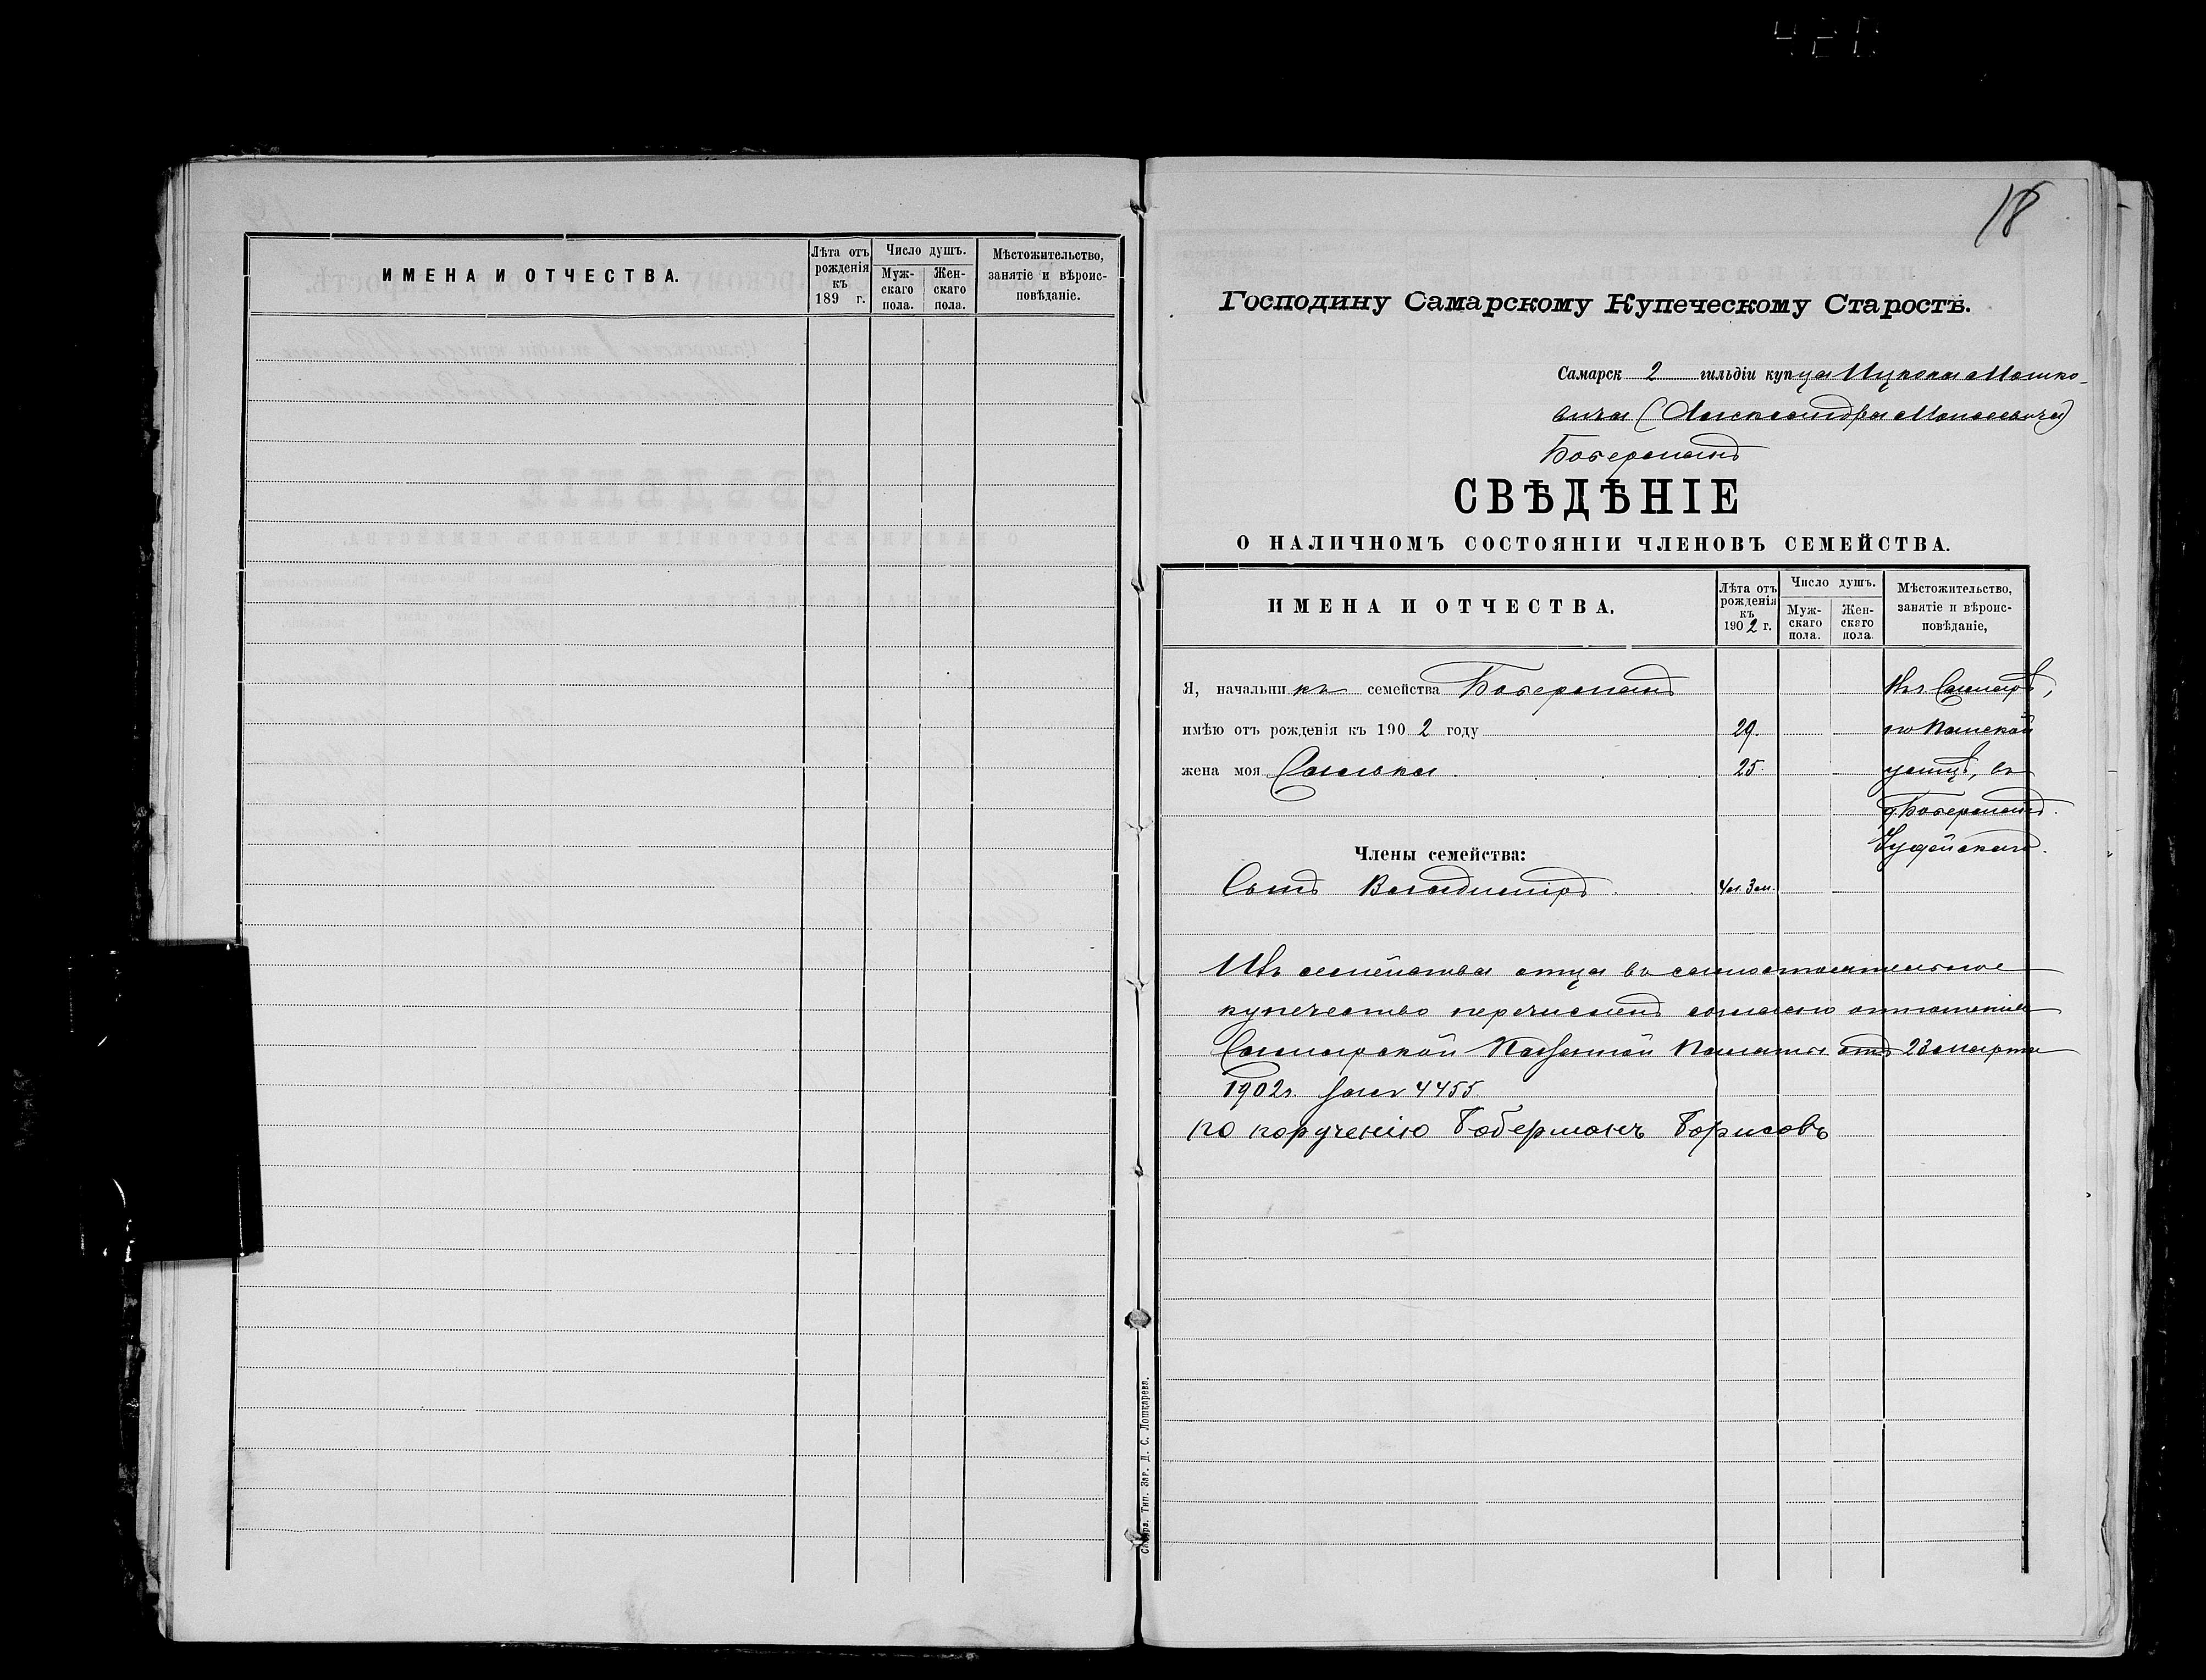 ИМЕНА И ОТЧЕСТВА.
Лѣта отъ рожденія къ 189 г.
Число душъ.
Мужскаго пола.
Женскаго пола.
Мѣстожительство, занятіе и вѣроисповѣданіе.
18
Господину Самарскому Купеческому Старостѣ.
Самарск 2 гильдіи купца Ицкока Мошко-
вича (Александра Моисеевича)
Боберманъ
СВѢДѢНІЕ
О НАЛИЧНОМЪ СОСТОЯНІИ ЧЛЕНОВЪ СЕМЕЙСТВА.
ИМЕНА И ОТЧЕСТВА.
Лѣта отъ рожденія къ 1902 г.
Число душъ.
Мужскаго пола.
Женскаго пола.
Мѣстожительство, занятіе и вѣроисповѣданіе,
Я, начальникъ семейства Боберманъ
Въ Самарѣ,
имѣю отъ рожденія къ 1902 году 29
жена моя 25
улицѣ, въ
д. Боберманъ.
Іудейскаго.
Члены семейства:
Сынъ Владиміръ 4 л. 3 м.
Изъ семейства отца въ самостоятельное
купечество перечисленъ согласно отношенія
Самарской Казенной Палаты отъ 23 марта
1902 г. за № 4455.
по порученію Боберманъ Борисовъ
Самара. Тип. Заг. Д. С. Лошкарева.